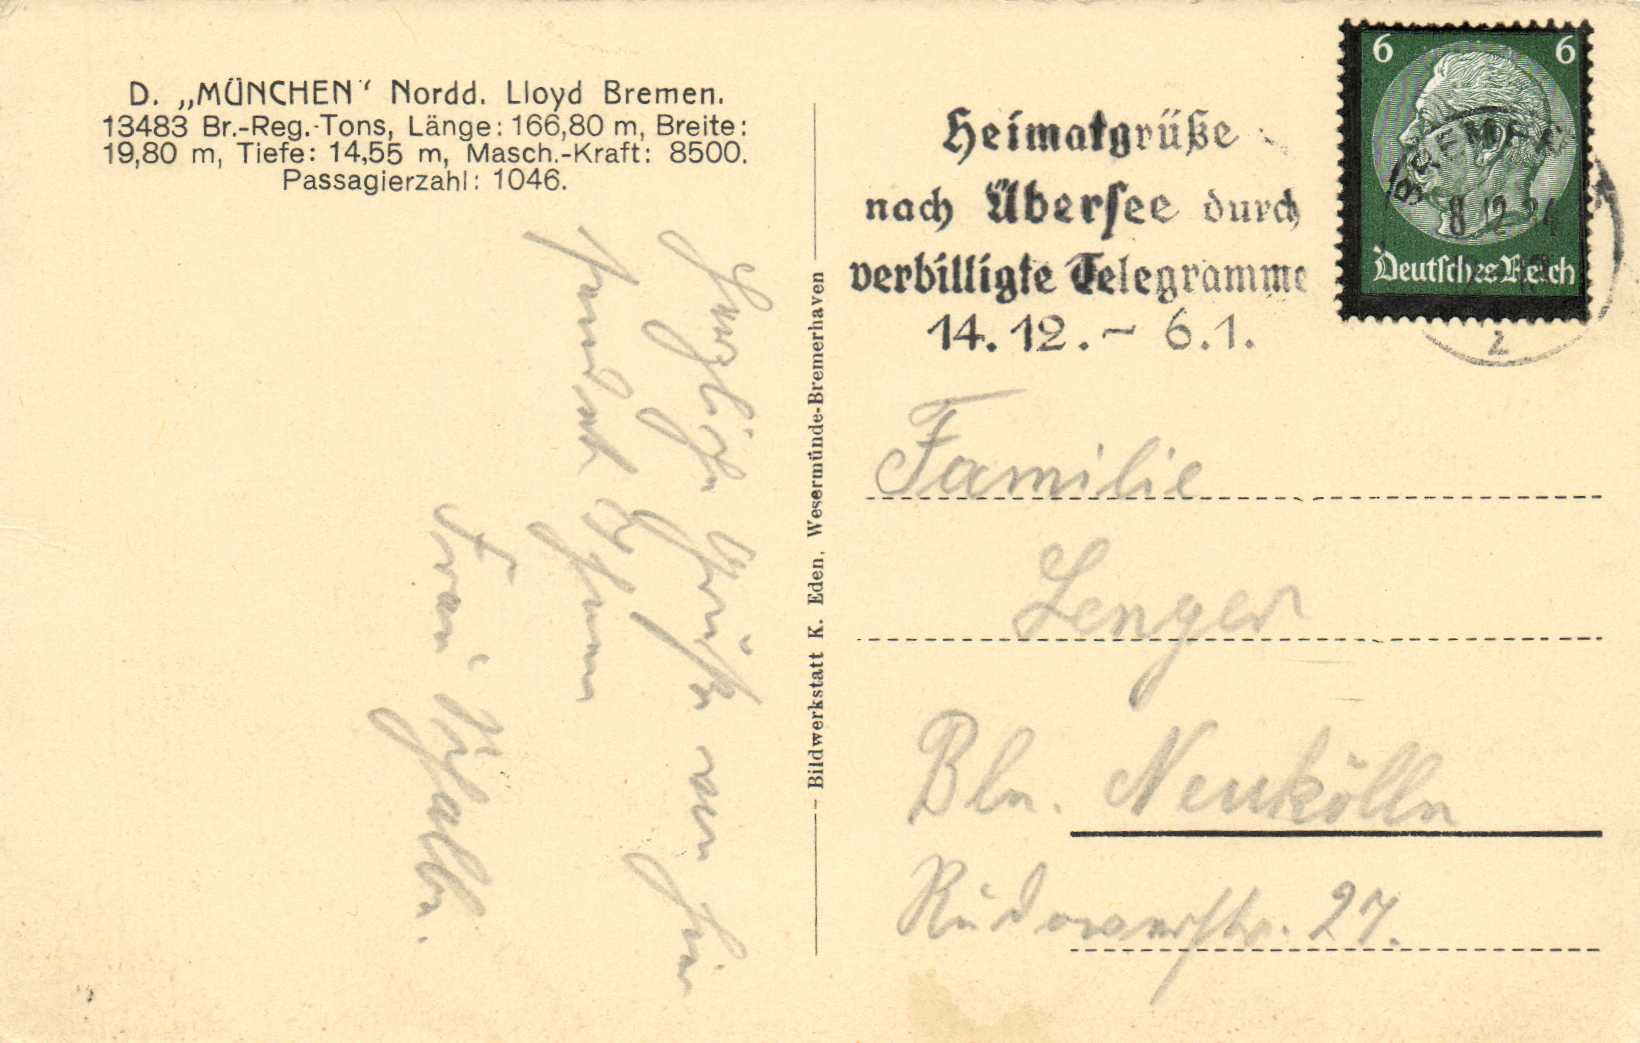 D. „MÜNCHEN“ Nordd. Lloyd Bremen.
13483 Br.-Reg.-Tons, Länge: 166,80 m, Breite:
19,80 m, Tiefe: 14,55 m, Masch.-Kraft: 8500.
Passagierzahl: 1046.
Herzliche Grüße von hier
sendet Ihnen
Frau
Bildwerkstatt K. Eden, Wesermünde-Bremerhaven
Heimatgrüße
nach Übersee durch
verbilligte Telegramme
14.12.- 6.1.
6 6
Deutsches Reich
BREMEN
8.12.34
2
Familie
Lenger
Bln. Neukölln
Rudowerstr. 27.